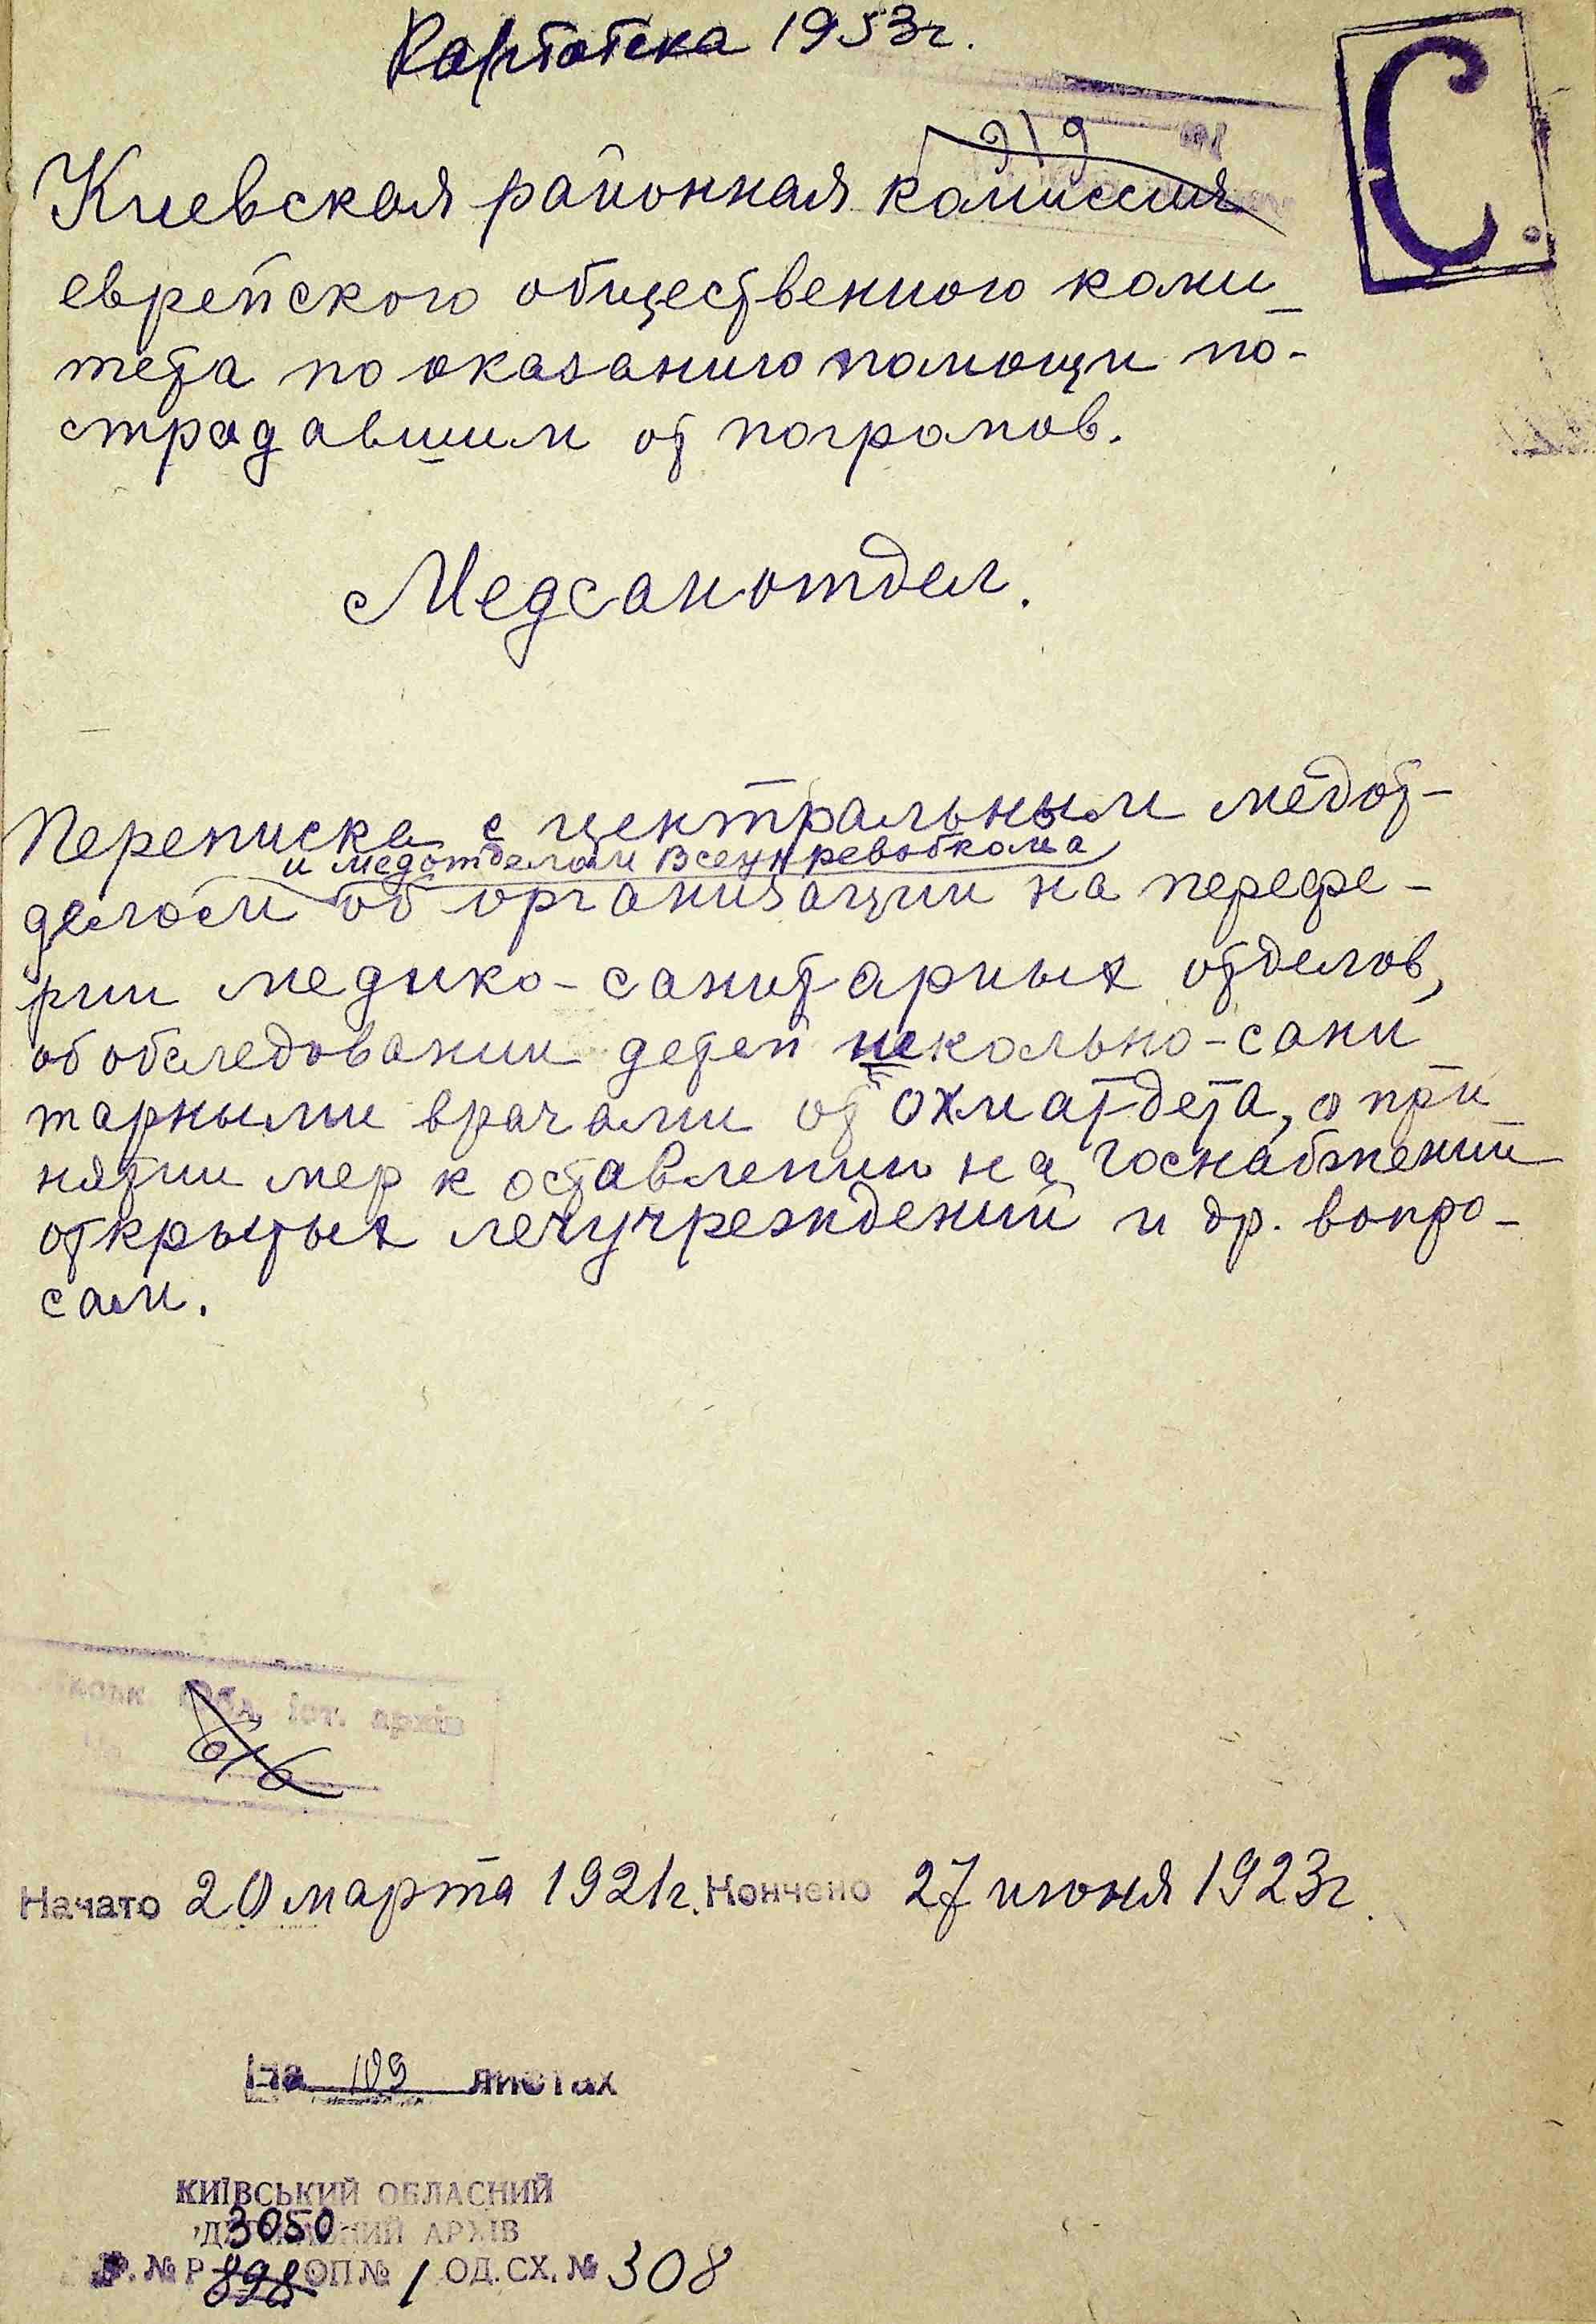 Картотека 1953г.
С.
919
Киевская районная комиссия
еврейского общественного коми
тета по оказанию помощи по-
страдавшим от погромов.
Медсанотдел.
Переписка с центральным медот-
и медотделом Всеукревобкома
делом об организации на перефе-
рии медико-санитарных отделов,
об обследовании детей школьно-сани
тарными врачами от охматдета, о при
нятии мер к оставлении на Госнабжении
открытых лечучреждений и др. вопро-
сам.
іст. архів
616
Начато 20 марта 1921г. Кончено 27 июня 1923г.
На 109 листах
КИЇВСЬКИЙ ОБЛАСНИЙ
3050
ДЕРЖАВНИЙ АРХІВ
Ф. № Р 898 ОП № 1 ОД. СХ. № 308